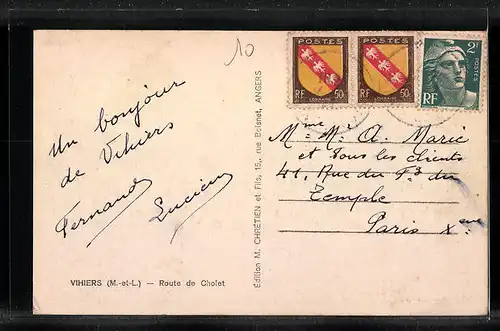 10
Un bonjour
de Vihiers
Fernand
Lucien
VIHIERS (M.-et-L.) — Route de Cholet
Édition M. CHRÉTIEN et Fils, 15, rue Boisnet, ANGERS
POSTES
RF LORRAINE 50c
POSTES
RF LORRAINE 50c
2F
POSTES
RF
Mme M. A. Marie
et tous les clients
41, Rue du Fg du
Temple
Paris Xeme